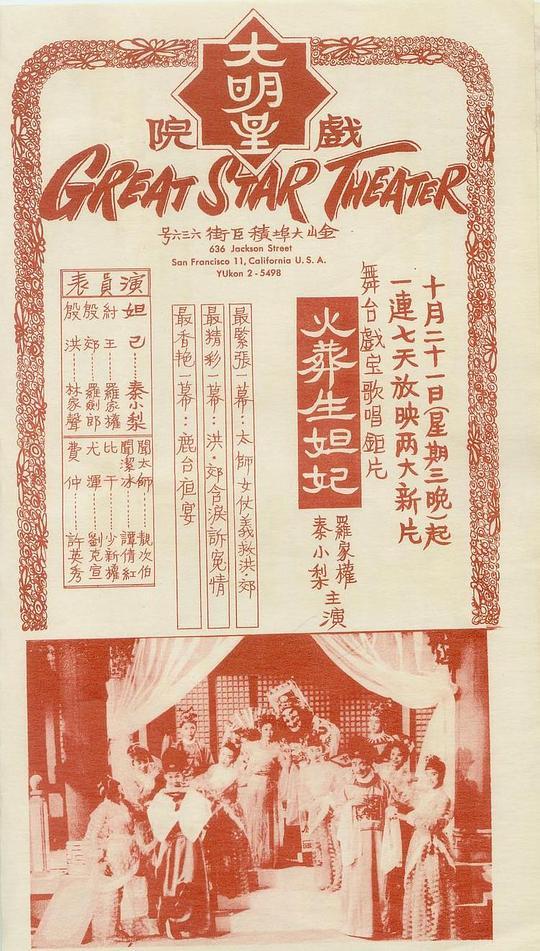 大明星
戲院
GREAT STAR THEATER
金山大埠積臣街六三六号
636 Jackson Street
San Francisco 11, California U. S. A.
YUkon 2 - 5498
十月二十一日(星期三晚)起
一連七天放映两大新片
舞台戲宝歌唱鉅片
火葬生妲妃
羅家權
秦小梨
主演
最緊張一幕：太師女仗義救洪·郊
最精彩一幕：洪·郊含淚訴寃情
最香艳一幕：鹿台夜宴
演員表
妲己……秦小梨
紂王……羅家權
殷郊……羅劍郎
殷洪……林家聲
聞太師……靓次伯
聞潔冰……譚倩紅
比干……少新權
尤渾……劉克宣
費仲……許英秀